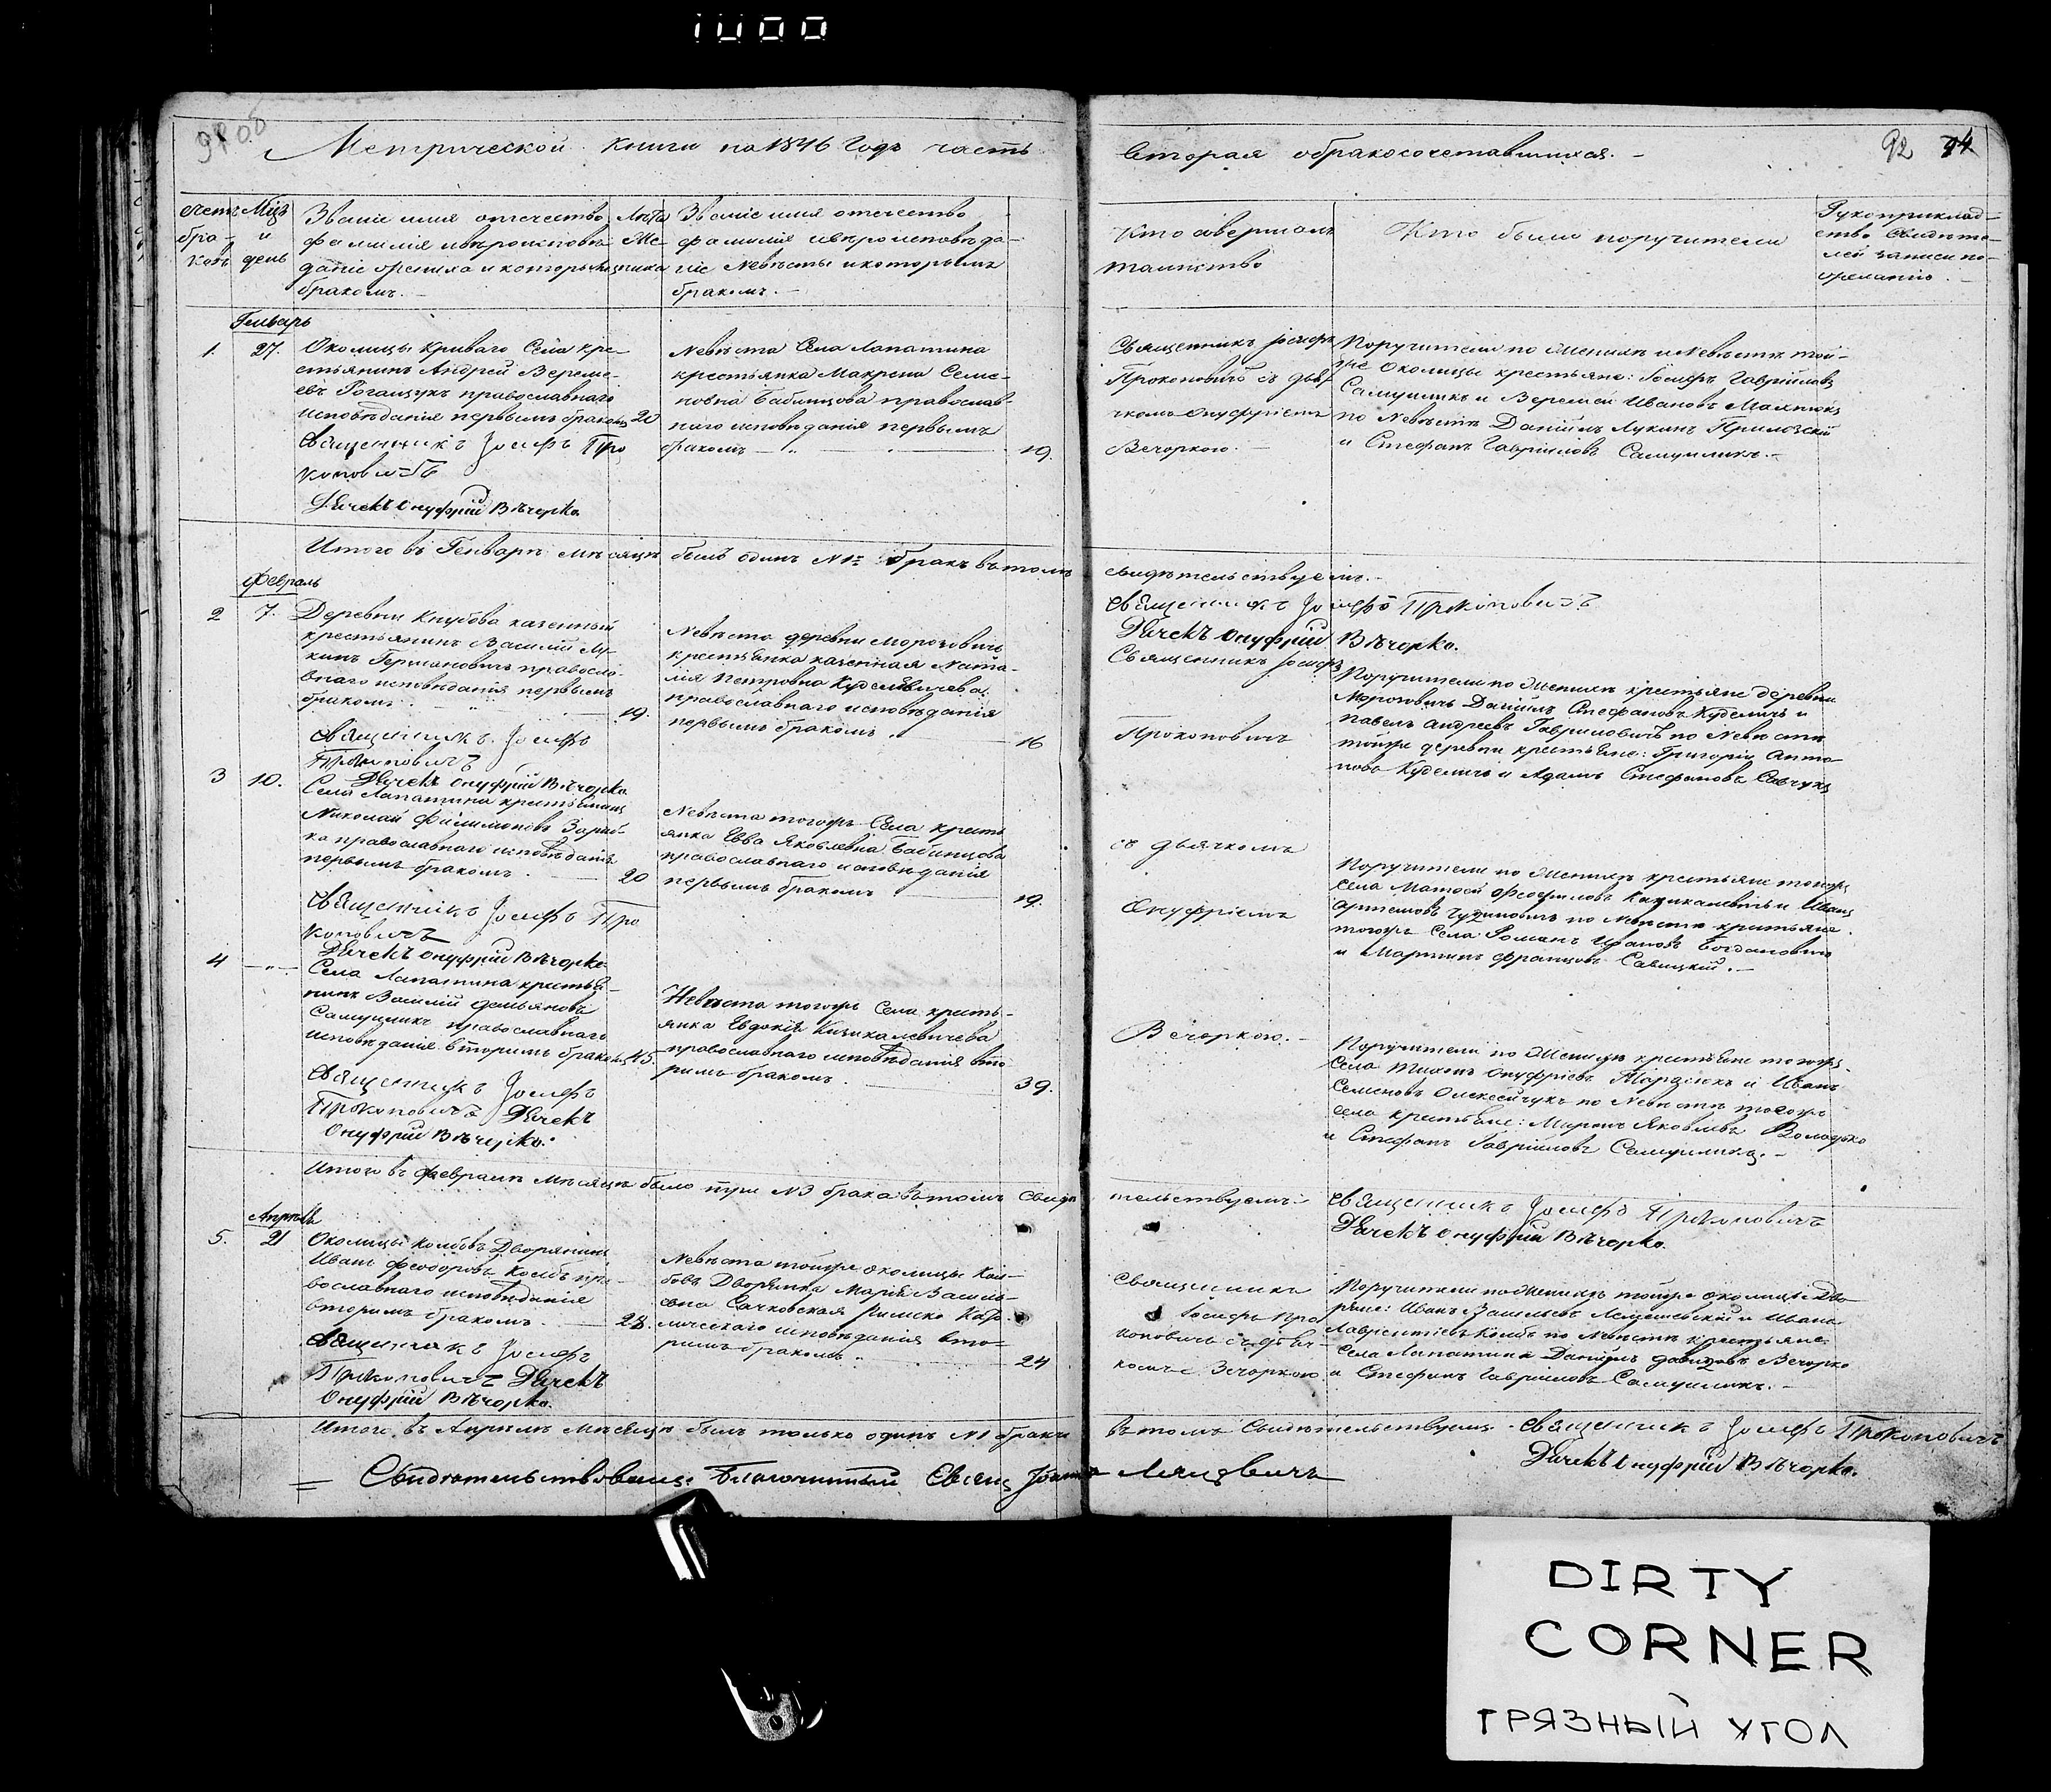 1000
Метрической книги на 1846 Годъ часть
вторая о бракосочетавшихся.-
92
Счетъ бра-ковъ
Мцъ и день
Званіе имя отечество
фамилія и вѣроисповѣ
даніе жениха и которымъ
бракомъ.-
Лѣта Же-ниха
Званіе имя отечество
фамилія и вѣроисповѣда-
ніе Невѣсты и которымъ
бракомъ.-
Кто совершалъ
таинство
Кто были поручители
Рукоприклад-
ство Свидѣте-
лей записи по
желанію.-
Генварь
1. 27.
Околицы Криваго Села кре-
стьянинъ Андрей Вереме-
евъ Рогацукъ православнаго
исповѣданія первымъ бракомъ 20
Священникъ Іосифъ Про
коповичъ
Дьячекъ Онуфрій Вѣчорко
Невѣста Села Лапатина
крестьянка Макрена Семе-
новна Бабинцова православ-
наго исповѣданія первымъ
бракомъ 19.
Священникъ Іосифъ
Прокоповичъ съ дья-
чкомъ Онуфріемъ
Вечоркою.-
Поручители по Женихѣ и Невѣстѣ той-
же Околицы крестьяне: Іосифъ Гавриловъ
Самуиликъ и Веремей Ивановъ
по Невѣстѣ Даніилъ Лукинъ
и Стефанъ Гавриловъ Самуиликъ.-
Итого въ Генварѣ мѣсяцѣ былъ одинъ №1= бракъ въ томъ
свидѣтельствуемъ.-
Священникъ Іосифъ Прокоповичъ
Дьячекъ Онуфрій Вѣчорко.
Февраль
2 7.
Деревни Кнубова казенный
крестьянинъ Василій Ми-
кинъ Германовичъ правосла-
внаго исповѣданія первымъ
бракомъ 19.
Священникъ Іосифъ
Прокоповичъ
Дьячекъ Онуфрій Вѣчорко
Невѣста деревни Морочовичъ
крестьянка казенная Ната-
лія Петровна Куделевичева
православнаго исповѣданія
первымъ бракомъ. 16
Священникъ Іосифъ
Прокоповичъ
Поручители по Женихѣ крестьяне деревни
Морочовичъ Даніилъ Стефановъ Куделичъ и
Павелъ Андреевъ Гавриловичъ по Невѣстѣ
тойже деревни крестьяне: Григорій Анто
новъ Куделичъ и Адамъ Стефановъ Савчукъ
3 10.
Села Лапатина крестьянинъ
Николай Филимоновъ
православнаго исповѣданія
первымъ бракомъ. 20
Священникъ Іосифъ Про
коповичъ
Дьячекъ Онуфрій Вѣчорко
Невѣста тогожъ Села кресть
янка Евва Яковлевна Бабинцова
православнаго исповѣданія
первымъ бракомъ 19.
съ дьячкомъ
Онуфріемъ
Поручители по Женихѣ крестьяне тогожъ
села Матвей Феофиловъ Кизикалевичъ и Иванъ
Артемовъ по Невѣстѣ крестьяне
тогожъ Села Романъ Ивановъ Богдановичъ
и Мартинъ Францовъ Савицкій.-
4
Села Лапатина крестья-
нинъ Василій Демьяновъ
Самуиликъ православнаго
исповѣданія вторимъ бракомъ 45.
Священникъ Іосифъ
Прокоповичъ Дьячекъ
Онуфрій Вѣчорко.
Невѣста тогожъ Села кресть-
янка Евдокія Кизикалевичева
православнаго исповѣданія вто
римъ бракомъ. 39.
Вечоркою.-
Поручители по Женихѣ крестьяне тогожъ
Села Тихонъ Онуфріевъ и Иванъ
Семеновъ Олексейчукъ по Невѣстѣ тогожъ
села крестьяне: Миронъ Яковлевъ Володько
и Стефанъ Гавриловъ Самуиликъ.-
Итого въ Февралѣ Мѣсяцѣ было три №3 брака въ томъ свидѣ
тельствуемъ.-
Священникъ Іосифъ Прокоповичъ
Дьячекъ Онуфрій Вѣчорко.
Апрѣль
5. 21
Околицы Колбовъ Дворянинъ
Иванъ Феодоровъ Колбъ пра-
вославнаго исповѣданія
вторимъ бракомъ. 28.
Священникъ Іосифъ
Прокоповичъ Дьячекъ
Онуфрій Вѣчорко.
Невѣста тойже околицы Кол-
бовъ Дворянка Марія Василь-
евна Сачковская Римско Като-
лическаго исповѣданія вто-
римъ бракомъ. 24
Священникъ
Іосифъ Про
коповичъ съ дья-
комъ Вечоркою
Поручители по Женихѣ тойже околицы Дво-
ряне: Иванъ Васильевъ и Иванъ
Лаврентіевъ Колбъ по Невѣстѣ крестьяне
Села Лапатина Даніилъ Давидовъ Вечорко
и Стефанъ Гавриловъ Самуиликъ.-
Итого въ Апрѣлѣ Мѣсяцѣ былъ только одинъ №1 бракъ
въ томъ Свидѣтельствуемъ. Священникъ Іосифъ Прокоповичъ
Дьячекъ Онуфрій Вѣчорко.
Свидѣтельствовалъ Благочинный Свящ
DIRTY
CORNER
ГРЯЗНЫЙ УГОЛ